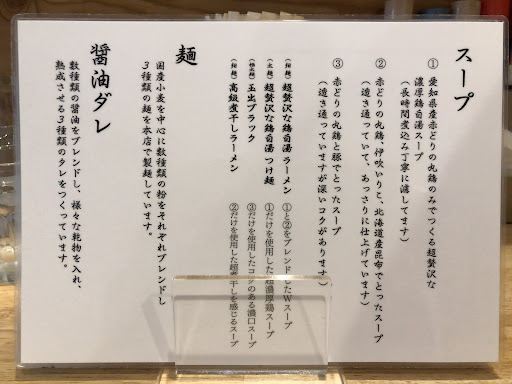 スープ
① 愛知県産赤どりの丸鶏のみでつくる超贅沢な
濃厚鶏白湯スープ
(長時間煮込み丁寧に濾してます)
② 赤どりの丸鶏、伊吹いりこ、北海道産昆布でとったスープ
(透き通っていて、あっさりに仕上げています)
③ 赤どりの丸鶏と豚でとったスープ
(透き通っていますが深いコクがあります)
(細麺) 超贅沢な鶏白湯ラーメン ①と②をブレンドしたWスープ
(太麺) 超贅沢な鶏白湯つけ麺 ①だけを使用した超濃厚鶏スープ
(極太麺) 玉出ブラック ③だけを使用したコクのある濃口スープ
(細麺) 高級煮干しラーメン ②だけを使用した超煮干しを感じるスープ
麺
国産小麦を中心に数種類の粉をそれぞれブレンドし
3種類の麺を本店で製麺しています。
醤油ダレ
数種類の醤油をブレンドし、様々な乾物を入れ、
熟成させる3種類のタレをつくっています。